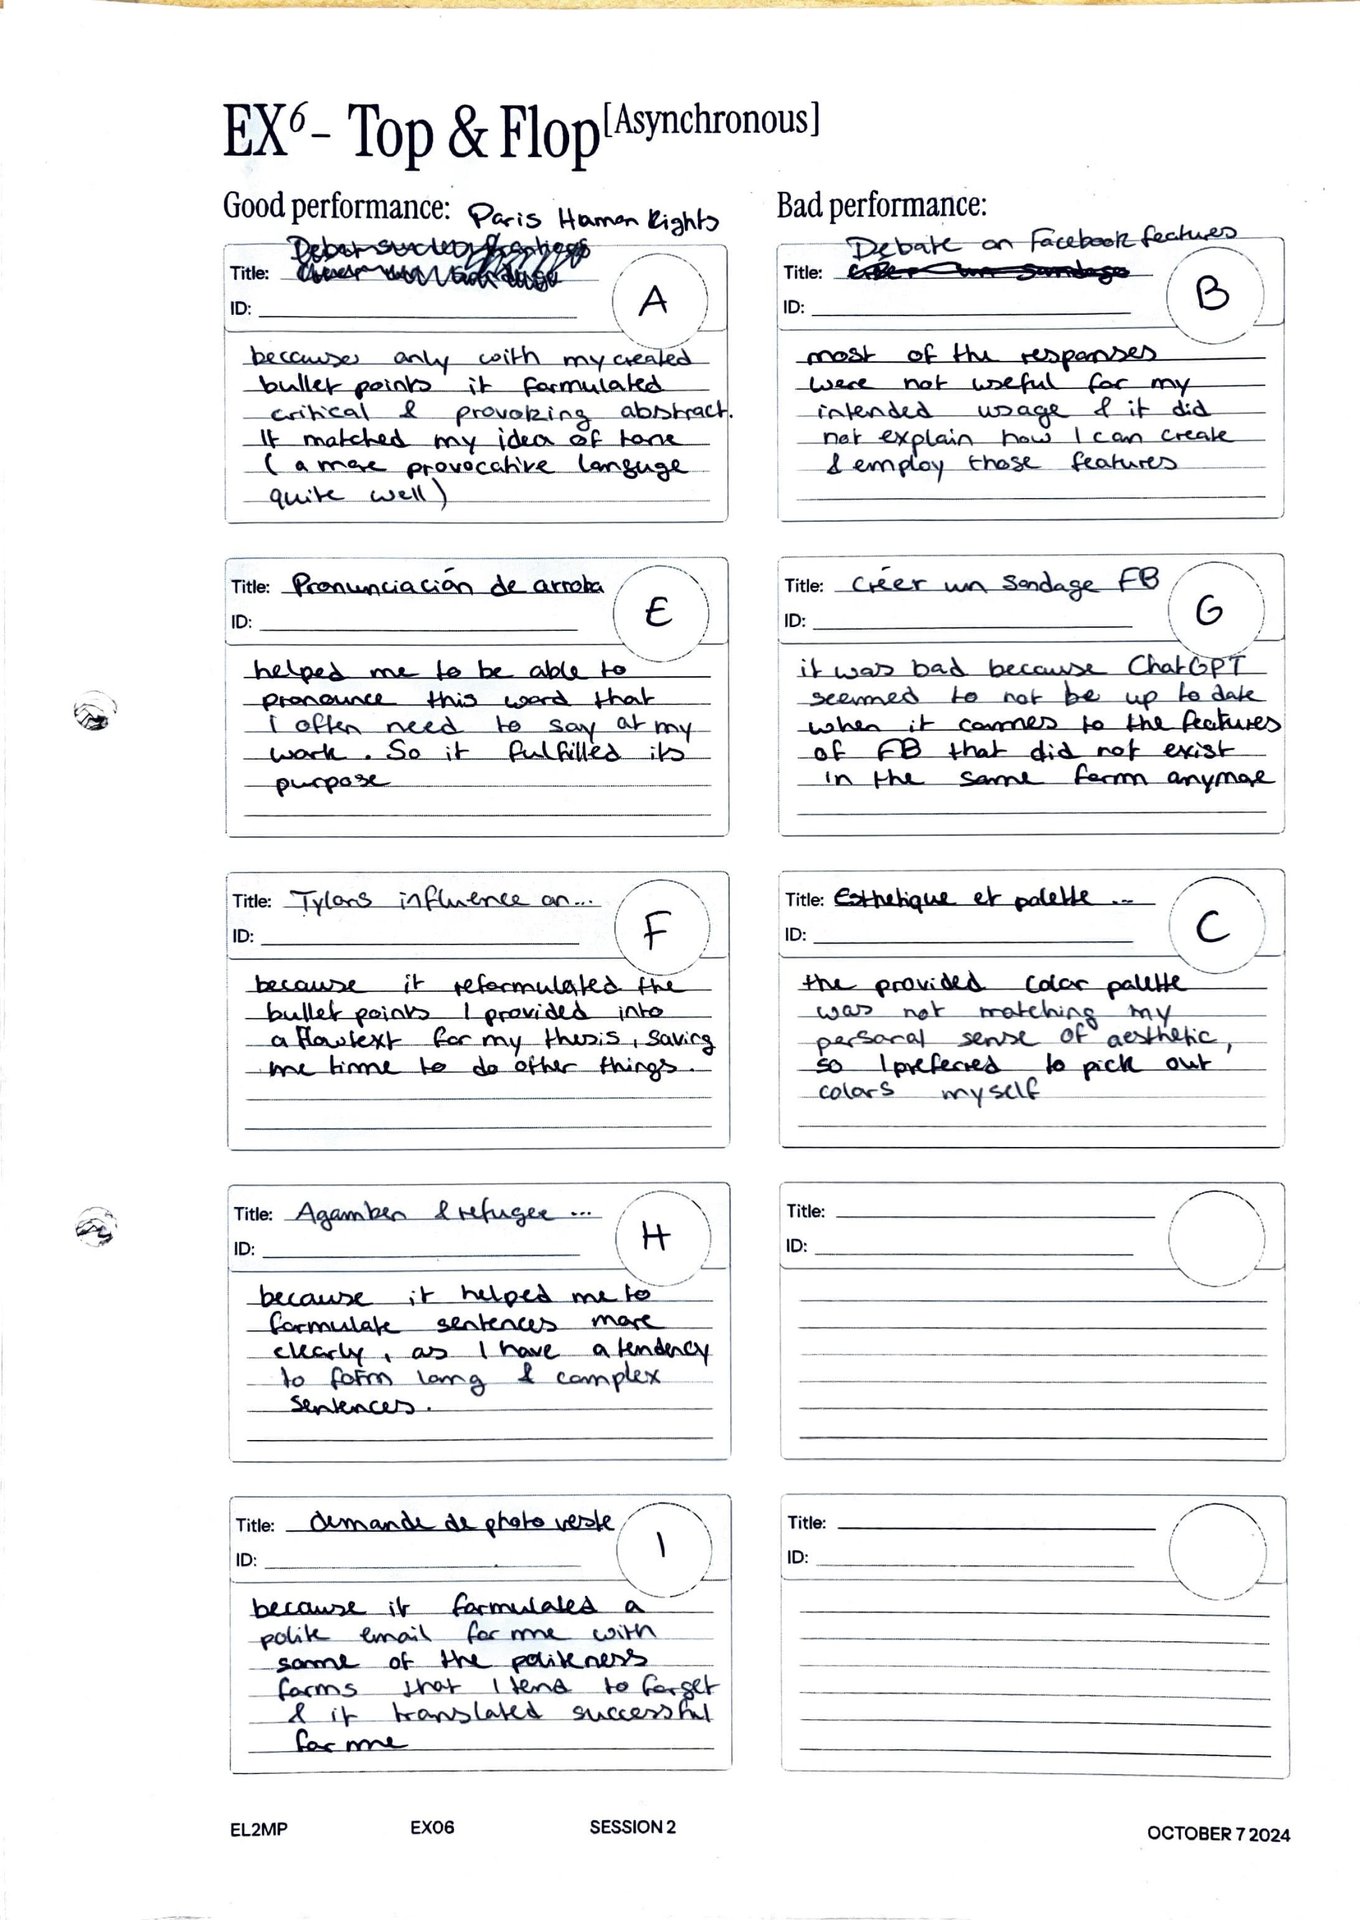 EX6 – Top & Flop [Asynchronous]
Good performance: Paris Human Rights
Title:
ID:
A
because only with my created
bullet points it formulated
critical & provoking abstract.
It matched my idea of tone
(a more provocative language
quite well)
Title: Pronunciación de arroba
ID:
E
helped me to be able to
pronounce this word that
i often need to say at my
work. So it fulfilled its
purpose
Title: Tylors influence on...
ID:
F
because it reformulated the
bullet points I provided into
a flowtext for my thesis, saving
me time to do other things.
Title: Agamben & refugee ...
ID:
H
because it helped me to
formulate sentences more
clearly, as I have a tendency
to form long & complex
sentences.
Title: demande de photo veste
ID:
I
because it formulated a
polite email for me with
some of the politeness
forms that I tend to forget
& it translated successful
for me
Bad performance:
Debate on Facebook features
Title:
ID:
B
most of the responses
were not useful for my
intended usage & it did
not explain how I can create
& employ those features
Title: Créer un sondage FB
ID:
G
it was bad because ChatGPT
seemed to not be up to date
when it commes to the features
of FB that did not exist
in the same form anymore
Title: Esthetique et palette ...
ID:
C
the provided color palette
was not matching my
personal sense of aesthetic,
so I preferred to pick out
colors myself
Title:
ID:
Title:
ID:
EL2MP EX06 SESSION 2 OCTOBER 7 2024